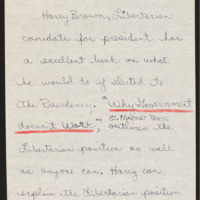 Harry Brown, Libertarian
canidate for president has
a excellent book on what
he would do if elected to
the Presidency. "Why Government
doesn't Work", St. Martins Press
outlines the
Libertarian position as well
as anyone can. Harry can
explain the Libertarian position